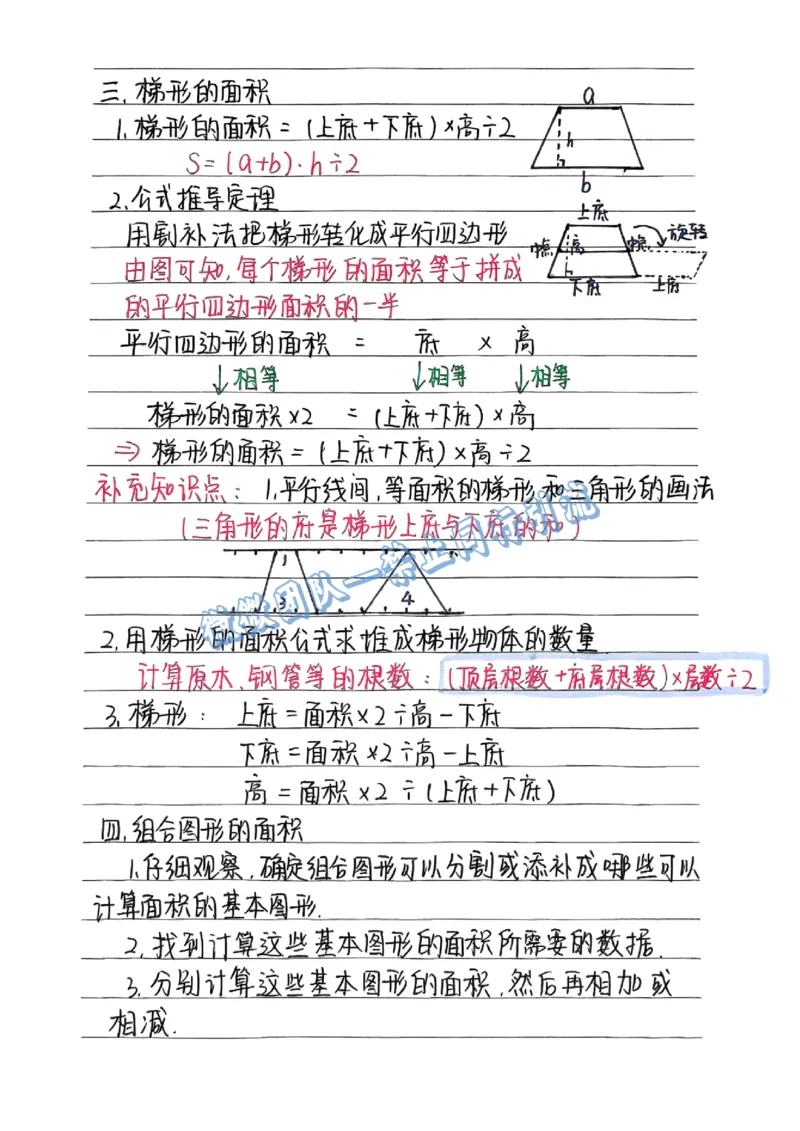 三、梯形的面积
1.梯形的面积=(上底+下底)×高÷2
S=(a+b)·h÷2
a
h
b
2.公式推导定理
用割补法把梯形转化成平行四边形
由图可知,每个梯形的面积等于拼成
的平行四边形面积的一半
上底
中点 高 中点 旋转
下底 上底
平行四边形的面积 = 底 × 高
↓相等 ↓相等 ↓相等
梯形的面积×2 =(上底+下底)×高
⇒ 梯形的面积=(上底+下底)×高÷2
补充知识点: 1.平行线间,等面积的梯形和三角形的画法
(三角形的底是梯形上底与下底的和)
1
3 4
微微团队一禁止商用引流
2.用梯形的面积公式求堆成梯形物体的数量
计算原木、钢管等的根数:(顶层根数+底层根数)×层数÷2
3.梯形: 上底=面积×2÷高-下底
下底=面积×2÷高-上底
高=面积×2÷(上底+下底)
四、组合图形的面积
1.仔细观察,确定组合图形可以分割或添补成哪些可以
计算面积的基本图形.
2.找到计算这些基本图形的面积所需要的数据.
3.分别计算这些基本图形的面积,然后再相加或
相减.